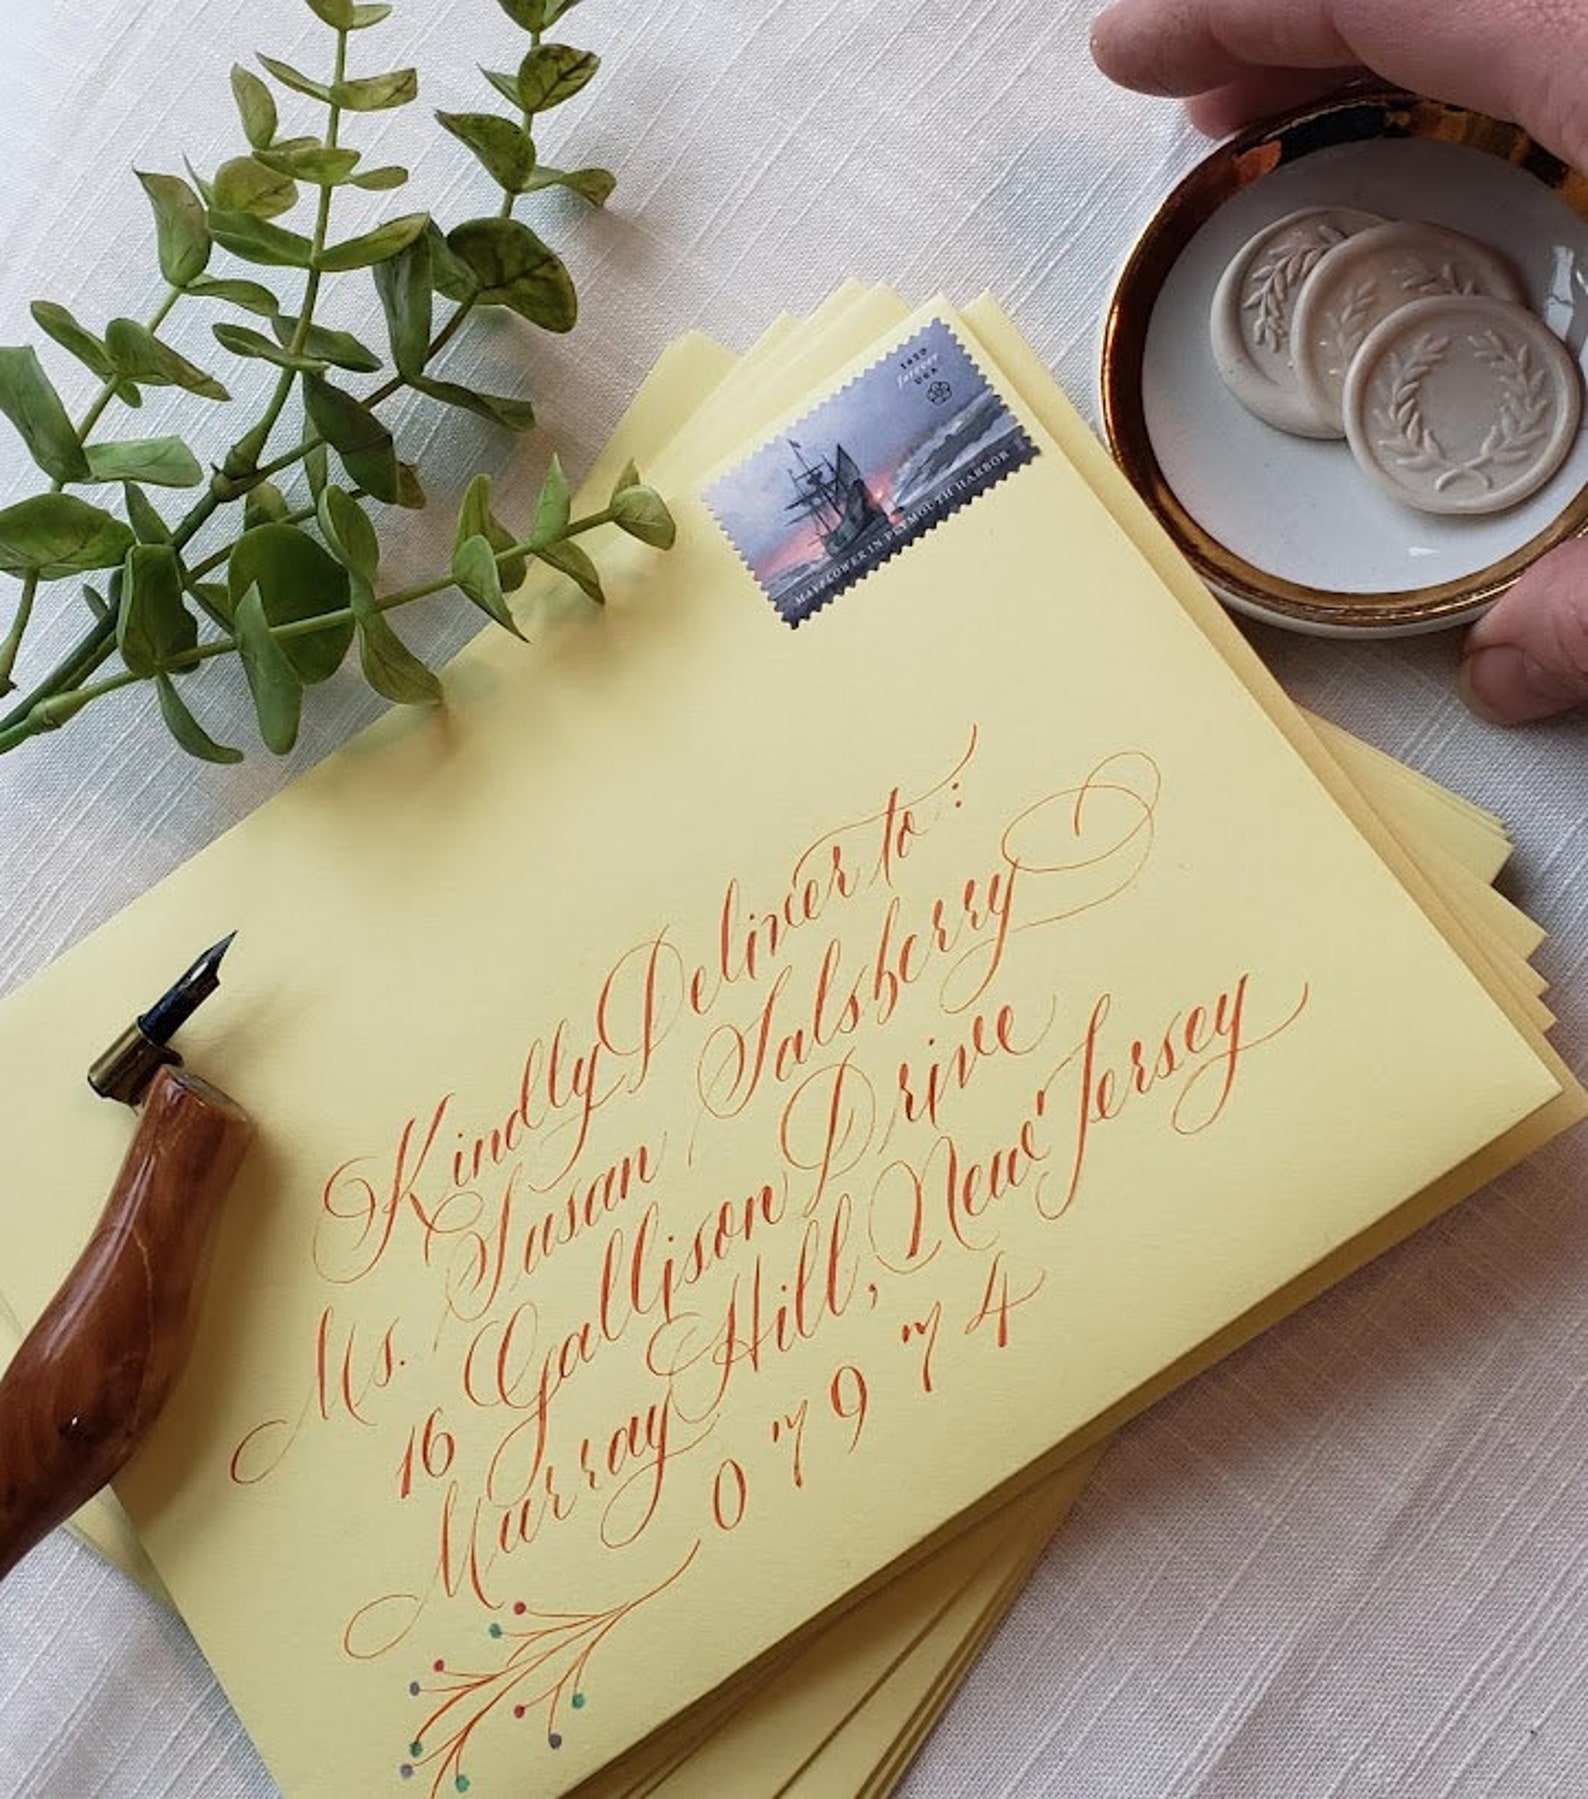 1620
forever
USA
MAYFLOWER IN PLYMOUTH HARBOR
Kindly Deliver to:
Ms. Susan Salsberry
16 Gallison Drive
Murray Hill, New Jersey
07974